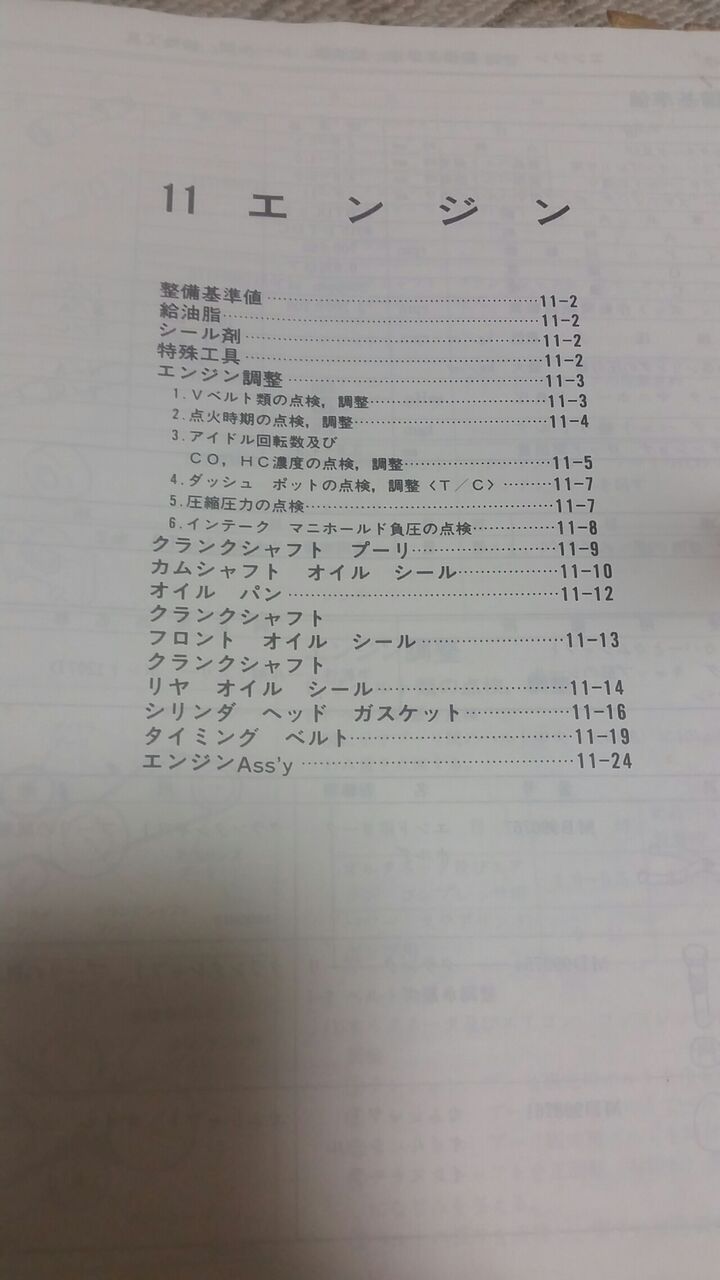 11 エンジン
整備基準値……………………………………11-2
給油脂……………………………………………11-2
シール剤…………………………………………11-2
特殊工具…………………………………………11-2
エンジン調整……………………………………11-3
1.Vベルト類の点検，調整………………………11-3
2.点火時期の点検，調整…………………………11-4
3.アイドル回転数及び
CO，HC濃度の点検，調整……………………11-5
4.ダッシュ ポットの点検，調整〈T／C〉…………11-7
5.圧縮圧力の点検…………………………………11-7
6.インテーク マニホールド負圧の点検……………11-8
クランクシャフト プーリ………………………11-9
カムシャフト オイル シール…………………11-10
オイル パン……………………………………11-12
クランクシャフト
フロント オイル シール………………………11-13
クランクシャフト
リヤ オイル シール……………………………11-14
シリンダ ヘッド ガスケット…………………11-16
タイミング ベルト……………………………11-19
エンジンAss'y…………………………………11-24